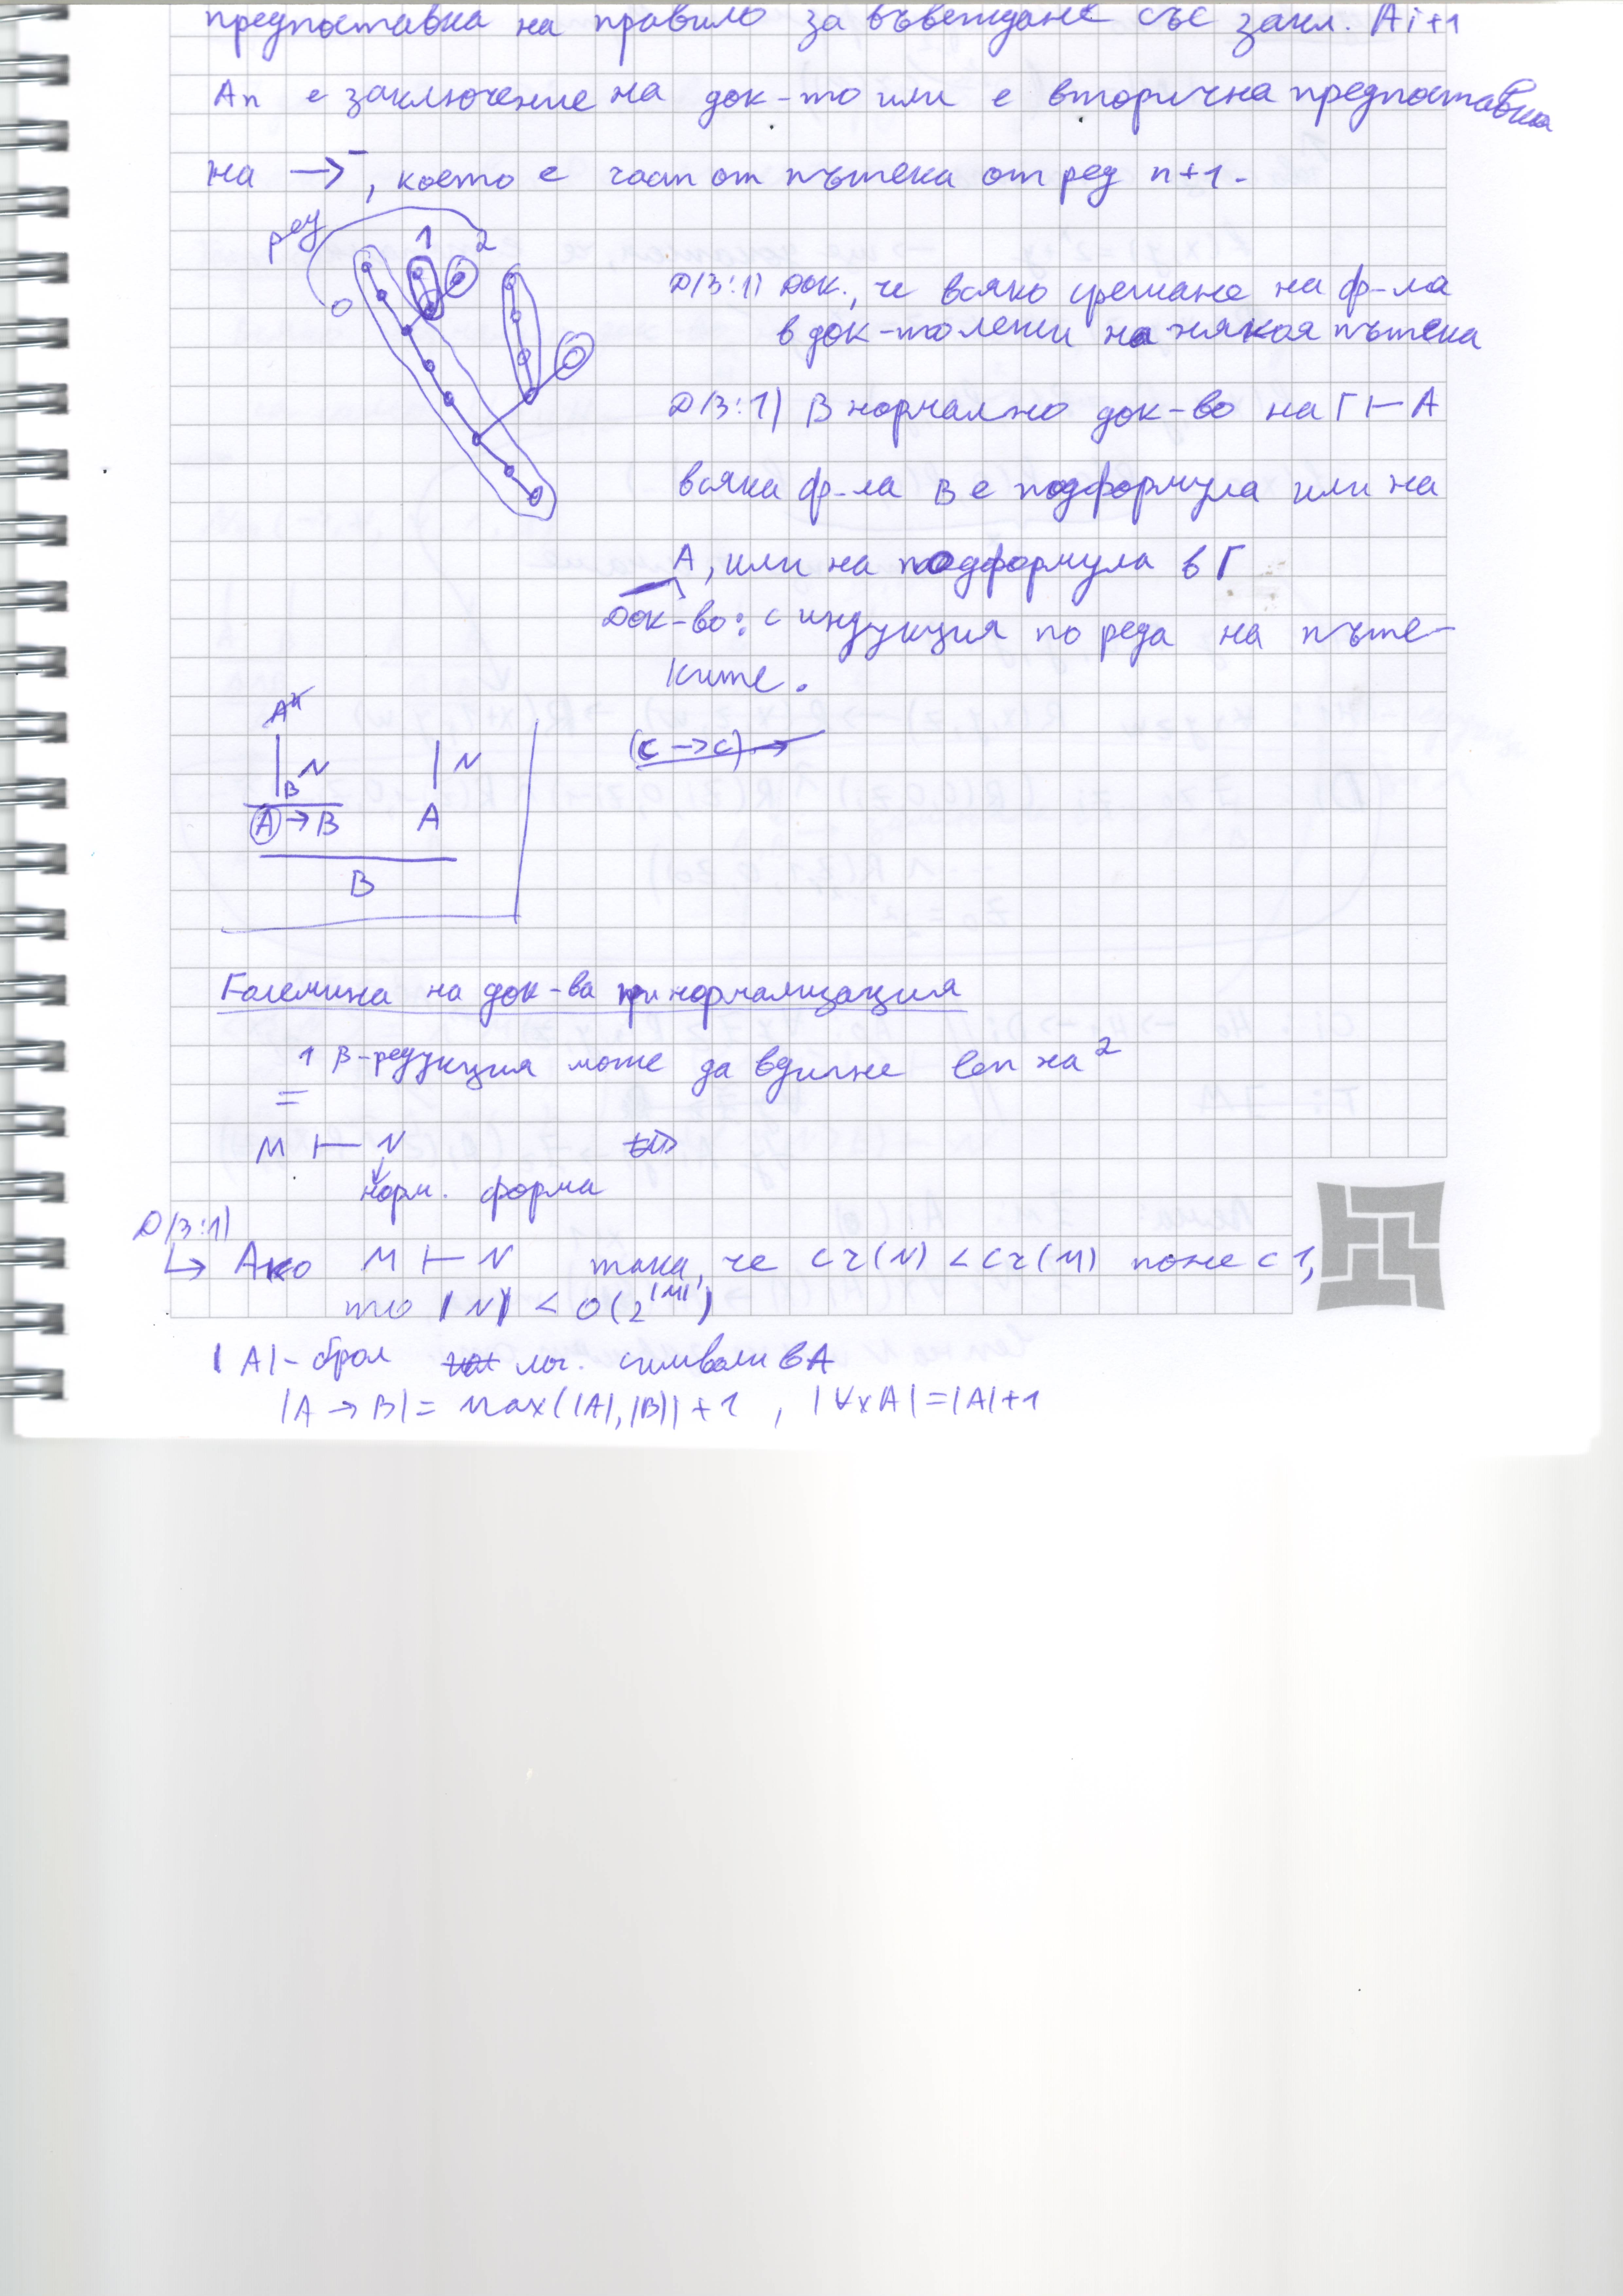 предпоставка на правило за въвеждане със закл. Ai+1
An е заключение на док-то или е вторична предпоставка
на →⁻, което е част от пътека от ред n+1.
ред 1 2
0
Д(З:1) Док., че всяко срещане на ф-ла
в док-то лежи на някоя пътека
Д(З:1) В нормално док-во на Γ ⊢ A
всяка ф-ла B е подформула или на
A, или на подформула в Γ
Док-во: с индукция по реда на пъте-
ките.
(C → C) →
N N
B
A → B A
B
Големина на док-ва при нормализация
1 β-редукция може да вдигне len на ²
=
M ⊢ N
норм. форма
Д(З:1)
↳ Ако M ⊢ N така, че сч(N) < сч(M) поне с 1,
то |N| < O(2^|M|)
|A| - брой лог. символи в A
|A → B| = max(|A|, |B|) + 1 , |∀xA| = |A| + 1